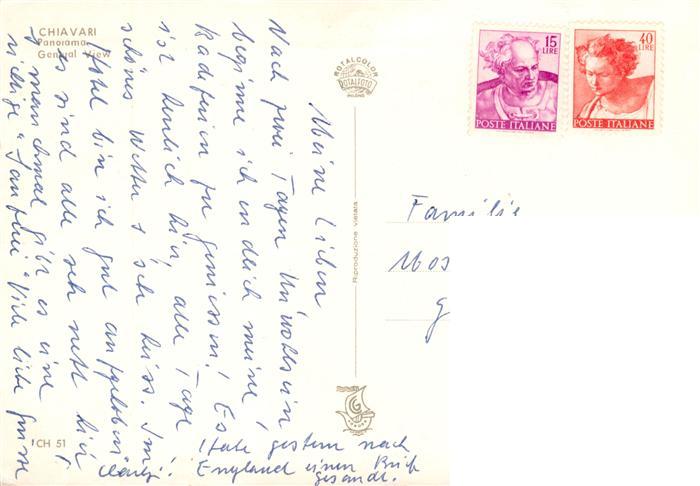 CHIAVARI
Panorama
General View
ROTALCOLOR
ROTALFOTO
MILANO
15
LIRE
POSTE ITALIANE
40
LIRE
POSTE ITALIANE
Meine Lieben
Nach zwei Tagen Unwohlsein
beginne ich endlich meine
Badeferien zu geniessen! Es
ist herrlich hier, alle Tage
schönes Wetter & sehr heiss. Im
Hotel bin ich gut aufgehoben
& es sind alle sehr nett hier,
manchmal gibt es eine
richtige "Viele liebe Grüsse
Habe gestern nach
England einen Brief
gesandt.
Familie
Mos
G
Riproduzione vietata
CH 51